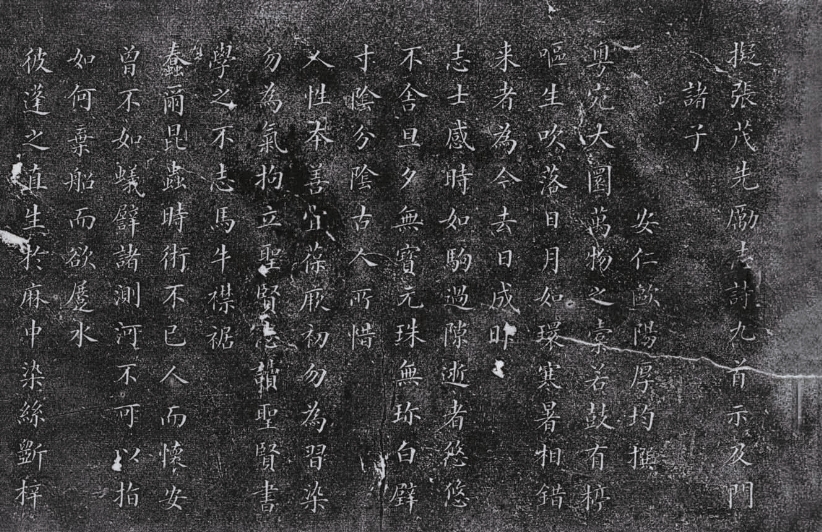 擬張茂先勵志詩九首示及門
諸子
安仁歐陽厚均撰
粵究大圜萬物之橐若鼓有桴
嘔生吹落日月如環寒暑相錯
来者為今去日成昨
志士感時如駒過隙逝者悠悠
不舍旦夕無寳元珠無珎白璧
寸陰分陰古人所惜
人性本善宜葆厥初勿為習染
勿為氣拘立聖賢志讀聖賢書
學之不志馬牛襟裾
蠢爾昆蟲時術不已人而懷安
曾不如蟻譬諸測河不可以指
如何棄船而欲屨水
彼蓬之直生於麻中染絲斲梓